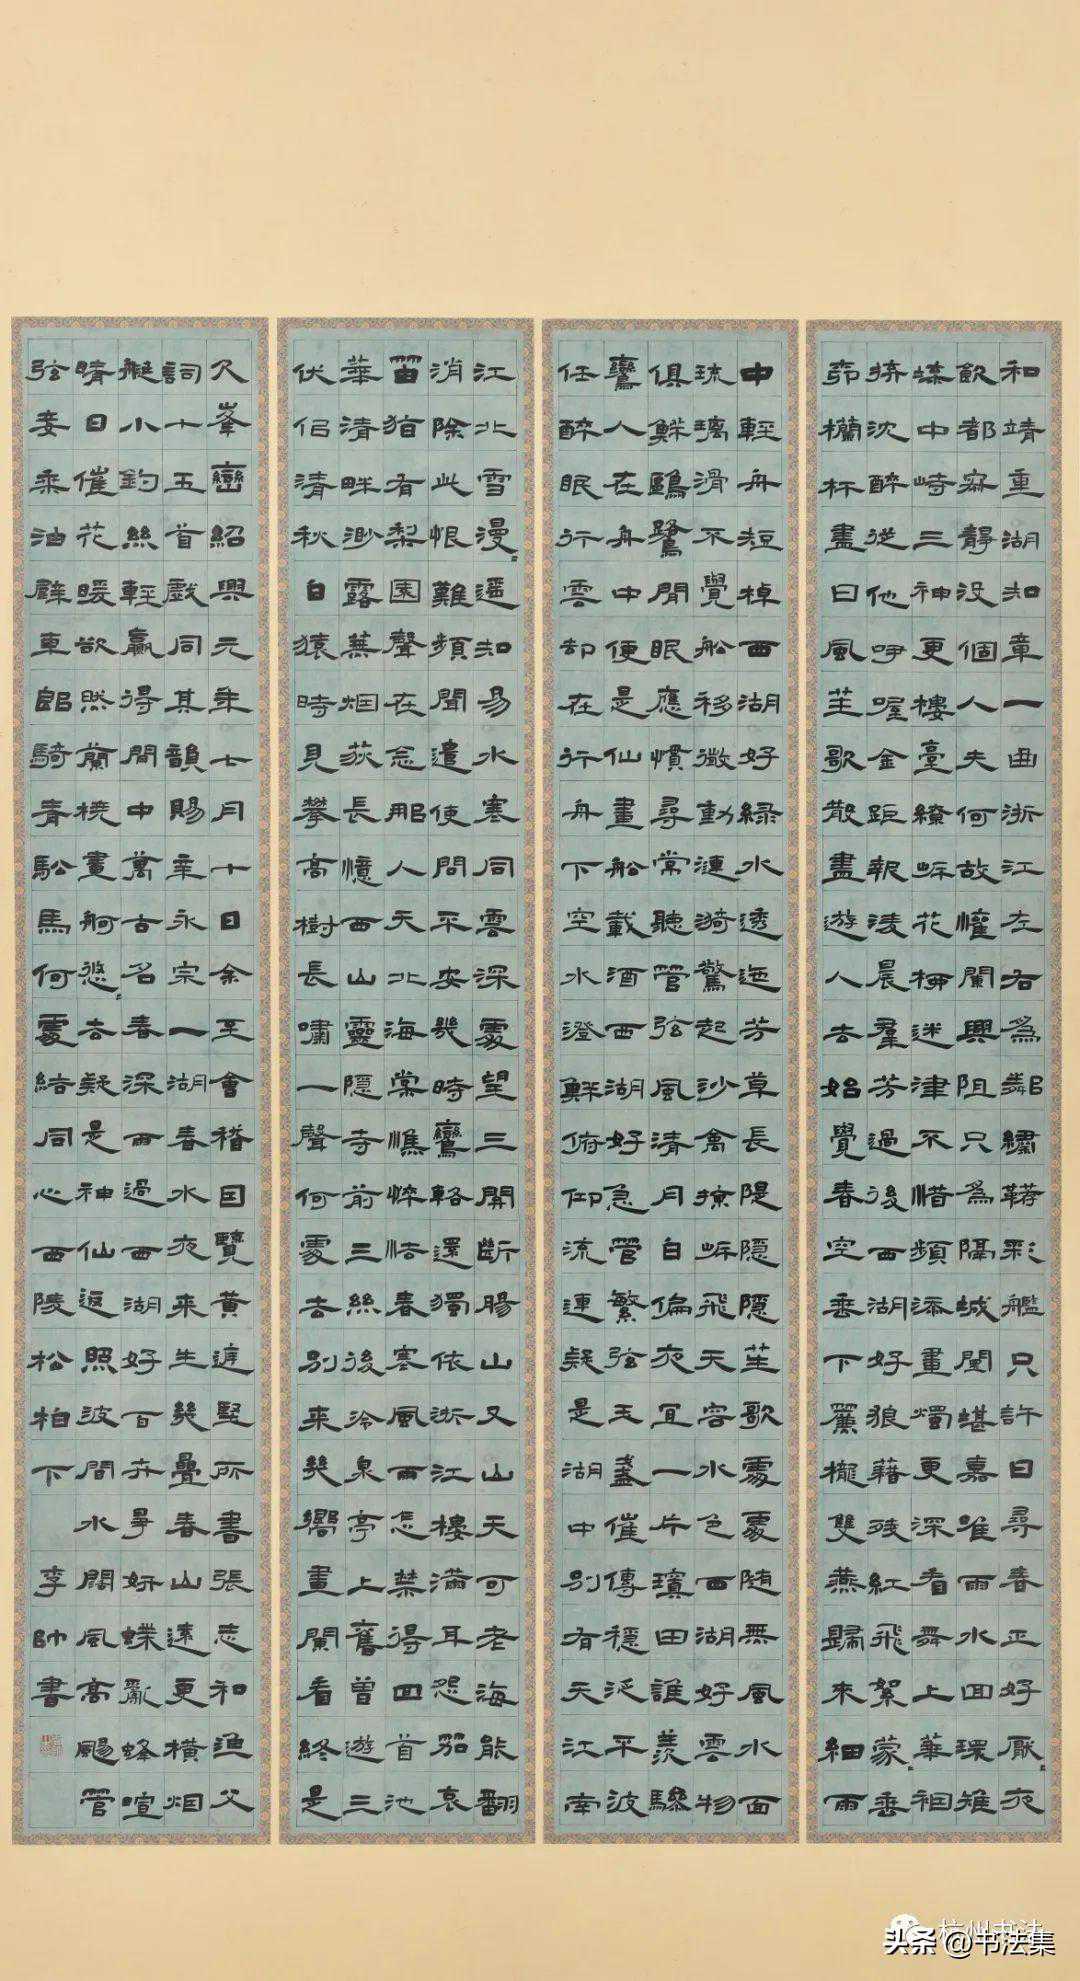 和靖重湖知章一曲浙江左右為鄰繡鞯彩艦只許日尋春正好厭夜
飲都寂靜没個人夫何故懽闌興阻只為隔城闉堪嘉唯雨水回環雉
堞中峙三神更樓臺繚岍花柳迷津不惜頻添畫燭更深看舞上華裀
拚沈醉從他呼喔金距報淩晨羣芳過後西湖好狼藉殘紅飛絮蒙垂
柳欄杆盡日風笙歌散盡遊人去始覺春空垂下簾櫳雙燕歸來細雨
中輕舟短棹西湖好綠水透迤芳草長隄隱隱笙歌處處随無風水面
琉璃滑不覺船移微動漣漪驚起沙禽掠岍飛天容水色西湖好雲物
俱鮮鷗鷺閒眠應慣尋常聽管弦風清月白偏夜宜一片瓊田誰羨驂
鸞人在舟中便是仙畫船載酒西湖好急管繁弦玉盞催傳穩泛平波
任醉眠行雲却在行舟下空水澄鮮俯仰流連疑是湖中別有天江南
江北雪漫漫遥知易水寒同雲深處望三關斷腸山又山天可老海能翻
消除此恨難頻聞遣使問平安幾時鸞輅還獨依浙江樓滿耳怨笳哀
留猶有梨園聲在念那人天北海棠憔悴怯春寒風雨怎禁得回首池
華清畔渺露蕪烟荻長憶西山靈隱寺前三絲後冷泉亭上舊曾遊三
伏侣清秋白猿時見攀高樹長嘯一聲何處去別來幾嚮畫闌看終是
欠峯巒紹興元年七月十日余至會稽因覽黃庭堅所書張志和漁父
詞十五首戲同其韻賜辛永宗一湖春水夜來生幾疊春山遠更橫烟
艇小釣絲輕贏得閒中萬古名春深雨過西湖好百卉爭妍蝶亂蜂喧
晴日催花暖欲然蘭橈畫舸悠悠去疑是神仙返照波間水闊風高颺管
弦妾乘油壁車郎騎青驄馬何處結同心西陵松柏下 李帥書
杭州书法
头条 @书法集